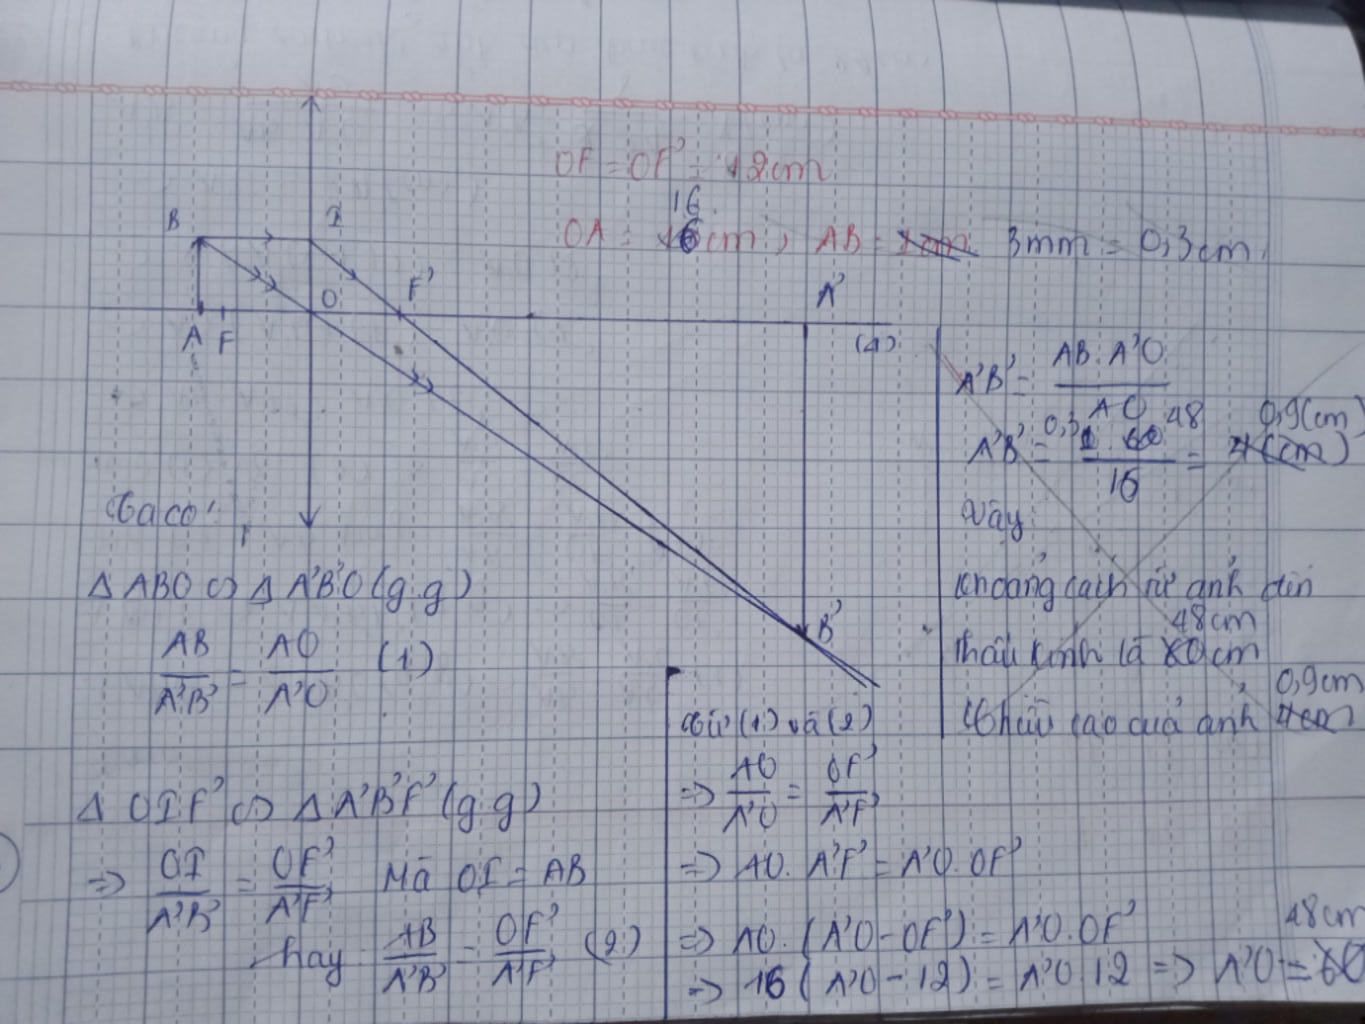 OF = OF' = 12cm
16
OA = 16cm, AB = 1cm 3mm = 0,3cm.
B I
O F' A'
A F (Δ)
B'
Ta có:
Δ ABO ∽ Δ A'B'O (g.g)
AB/A'B' = AO/A'O (1)
Δ OIF' ∽ Δ A'B'F' (g.g)
=> OI/A'B' = OF'/A'F' Mà OI = AB
hay AB/A'B' = OF'/A'F' (2)
Từ (1) và (2)
=> AO/A'O = OF'/A'F'
=> AO. A'F' = A'O. OF'
=> AO. (A'O - OF') = A'O. OF'
48cm
=> 16 (A'O - 12) = A'O 12 => A'O = 60
A'B' = AB. A'O/AO
0,3 48 0,9(cm)
A'B' = 1. 60/16 = 4(cm)
Vậy
khoảng cách từ ảnh đến
48cm
thấu kính là 60cm
0,9cm
Chiều cao của ảnh 4cm